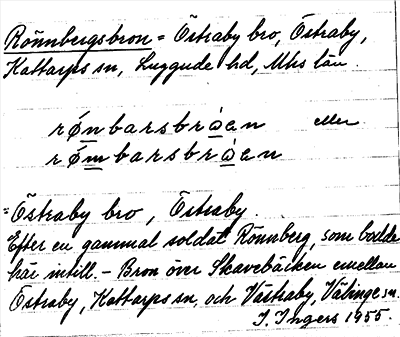 Rönnbergsbron = Östraby bro, Östraby,
Kattarps sn, Luggude hd, Mhs län.
rǿnbarsbròen eller
rǿmbarsbròen
= Östraby bro, Östraby.
Efter en gammal soldat Rönnberg, som bodde
här intill. – Bron över Skavebäcken emellan
Östraby, Kattarps sn, och Västraby, Välinge sn.
I. Ingers 1955.